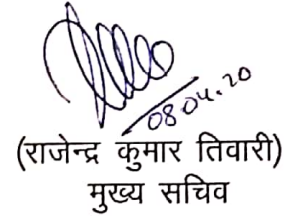 08.04.20
(राजेन्द्र कुमार तिवारी)
मुख्य सचिव